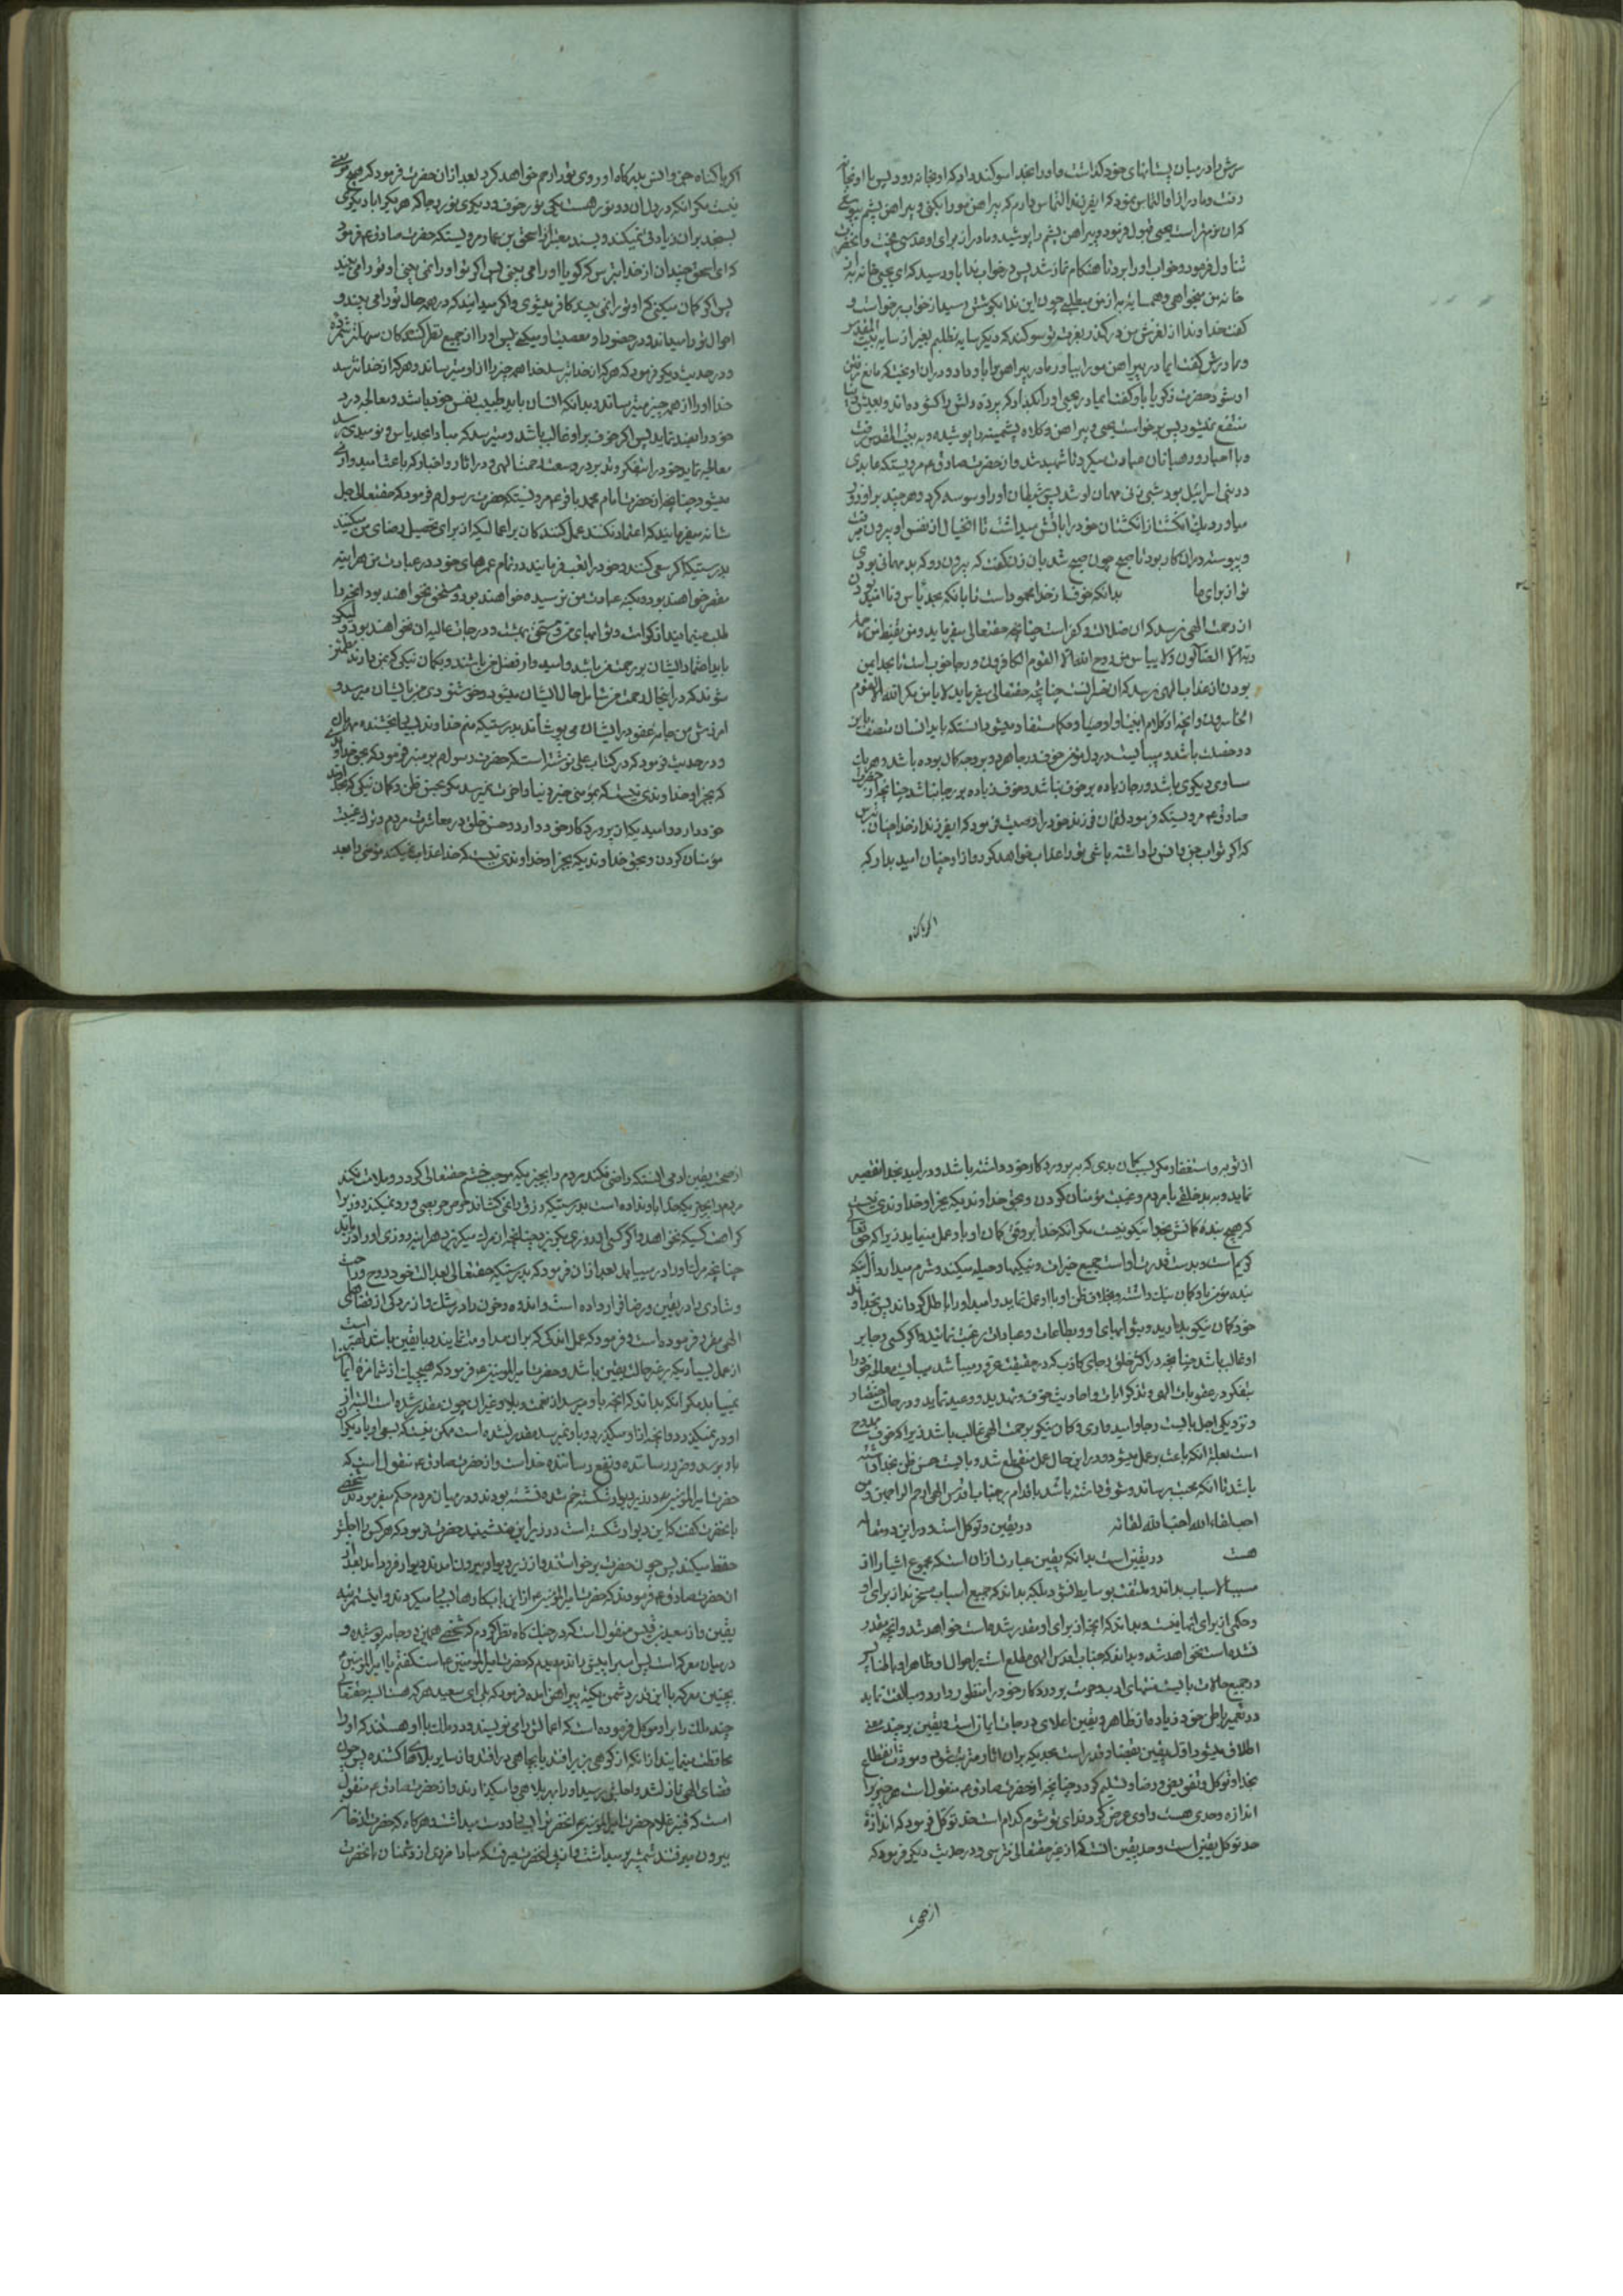 سرش را در میان پستانهای خود گذاشت و او را بخدا سوگند داد که او بخانه رود پس با او بخانه
رفت و مادر از او التماس نمود که ایفرزند التماس دارم که پیراهن مو را بکنی و پیراهن پشم بپوشی
که آن نرم‌تر است یحیی قبول فرمود و پیراهن پشم را پوشید و مادر از برای او عدسی پخت و آنحضرت
تناول فرمود و خواب او را بود تا هنکام نماز شد پس در خواب ندا باو رسید که ای یحیی خانه به از
خانه من میخواهی و همسایه به از من میطلبی چون این ندا بکوشش رسید از خواب برخواست و
گفت خداوندا از لغزش من در گذر بعزت تو سوگند که دیگر سایه نطلبم بغیر از سایه بیت المقدس
و بمادرش گفت ایمادر پیراهن مو را بیاور مادر پیراهن را باو داد و در او آویخت که مانع رفتن
او شود حضرت زکریا باو گفت ایمادر یحیی او را بگذار که پرده دلش را گشوده‌اند و بعیش دنیا
منتفع نمیشود پس برخواست یحیی و پیراهن و کلاه پشمینه را پوشیده و به بیت المقدس رفت
و با احبار و رهبانان عبادت میکرد تا شهید شد و از حضرت صادق ع مرویست که عابدی
در بنی اسرائیل بود شبی زنی مهمان او شد پس شیطان او را وسوسه کرد و هر چند بر او زور
میاورد یک انگشت از انگشتان خود را باتش میداشت تا آنخیال از نفس او بیرون میرفت
و پیوسته در این کار بود تا صبح چون صبح شد بان زن گفت که بیرون رو که بد مهمانی بودی
تو از برای ما بدانکه خوف از خدا محمود است تا بانکه بحد یأس و نا امید بودن
از رحمت الهی نرسد که آن ضلالت و کفر است چنانچه حقتعالی میفرماید و من یقنط من رحمة
ربه الا الضالون ولا ییاس من روح الله الا القوم الکافرون و رجا خوب است تا بحد ایمن
بودن از عذاب الهی نرسد که آن خسرانست چنانچه حقتعالی میفرماید لا یامن مکر الله الا القوم
الخاسرون و آنچه از کلام انبیا و اوصیا و حکما مستفاد میشود آنستکه باید انسان متصف باین
دو خصلت باشد و میبایست در دل مؤمن خوف و رجا هر دو بر وجه کمال بوده باشد و هر یک
مساوی دیگری باشد و رجا زیاده بر خوف نباشد و خوف زیاده بر رجا نباشد چنانچه از حضرت
صادق ع مرویستکه فرمود لقمان فرزند خود را وصیت فرمود که ایفرزند از خدا چنان بترس
که اگر ثواب جن و انس را داشته باشی تو را عذاب خواهد کرد و از او چنان امید بدار که
اگر با گناه
اگر با گناه جن و انس بدرگاه او روی تو را رحم خواهد کرد بعد از آن حضرت فرمود که هیچ مؤمنی
نیست مگر آنکه در دل او دو نور هست یکی نور خوف و دیگری نور رجا که هر یک را با دیگری
بسنجند بر آن زیادتی نمیکند و بسند معتبر از اسحق بن عمار مرویستکه حضرت صادق ع فرمود
که ای اسحق چندان از خدا بترس که گویا او را می بینی پس اگر تو او را نمی بینی او تو را می بیند
پس اگر گمان میکنی که او تو را نمی بیند کافر میشوی و اگر میدانی که در همه حال تو را می بیند و
احوال تو را میداند و در حضور او معصیت او میکنی پس او را از جمیع نظر کنندگان سهلتر شمرده
و در حدیث دیگر فرمود که هر که از خدا بترسد خدا همه چیز را از او میترساند و هر که از خدا نترسد
خدا او را از همه چیز میترساند و بدانکه انسان باید طبیب نفس خود باشد و معالجه درد
خود را بخود نماید پس اگر خوف بر او غالب باشد و میترسد که مبادا بحد یاس و نومیدی برسد
معالجه نماید خود را بتفکر و تدبر در وسعت رحمت الهی و در اثار و اخبار که باعث امیدواری
میشود چنانچه از حضرت امام محمد باقر ع مرویستکه حضرت رسول م فرمود که حقتعالی جل
شانه میفرمایند که اعتماد نکنند عمل کنندگان بر اعمالیکه از برای تحصیل رضای من میکنند
بدرستیکه اگر سعی کنند و خود را تعب فرمایند در تمام عمرهای خود در عبادت من هر آینه
مقصر خواهند بود و بکنه عبادت من نرسیده خواهند بود و مستحق نخواهند بود آنچه را
طلب مینمایند از کرامت و ثوابهای من و مستحق بهشت و درجات عالیه آن نخواهند بود و لیکن
باید اعتماد ایشان بر رحمت من باشد و امیدوار فضل من باشند و بگمان نیکی که بمن دارند مطمئن
شوند که در اینحال رحمت من شامل حال ایشان میشود و خوشنودی من بایشان میرسد و
آمرزش من جامه عفو در ایشان می پوشاند بدرستیکه منم خداوند بخشاینده مهربان
و در حدیث فرمود که در کتاب علی نوشته است که حضرت رسول م بر منبر فرمود که بحق خداوندی
که بجز او خداوندی نیست که بمؤمنی خیر دنیا و آخرت نمیرسد مگر بحسن ظن و گمان نیکی که بخداوند
خود دارد و امیدیکه از پروردکار خود دارد و حسن خلق در معاشرت مردم و ترک غیبت
مؤمنان کردن و بحق خداوندیکه بجز او خداوندی نیست که خدا عذاب نمیکند مؤمنی را بعد
از توبه و استغفار مگر بسبب گمان بدی که به پروردکار خود داشته باشد و در امید بخدا تقصیر
نماید و به بد خلقی با مردم و غیبت مؤمنان کردن و بحق خداوندیکه بجز او خداوندی نیست
که هیچ بنده گمانش بخدا نیکو نیست مگر آنکه خدا بر وفق گمان او با او عمل مینماید زیرا که حقتعالی
کریم است و بدست قدرت او است جمیع خیرات و نیکیها و حیله میکند و شرم میدارد از آنکه
بنده مؤمن باو گمان نیک داشته و بخلاف ظن او با او عمل نماید و امید او را باطل گرداند پس بخداوند
خود گمان نیکو بدارید و بثوابهای او و بطاعات و عبادات رغبت نمائید و اگر کسی رجا بر
او غالب باشد چنانچه در اکثر خلق رجای کاذب که در حقیقت غرور میباشد میبایست معالجه خود را
بتفکر در عقوبات الهی و تذکر آیات و احادیث خوف و تهدید و وعید نماید و در حالت احتضار
و نزدیکی اجل بایست رجا و امیدواری و گمان نیکو برحمت الهی غالب باشد زیرا که خوف ممدوح
است بعلة آنکه باعث بر عمل میشود و در این حال عمل منقطع شد و بایست حسن ظن بخدا داشته
باشد تا آنکه محبت برساند و شوق داشته باشد باقدام بر جناب اقدس الهی ارحم الراحمین و من
احب لقاء الله احب الله لقائه در یقین و توکل است و در این دو مقاله
هست در یقین است بدانکه یقین عبارت از آن است که مجموع اشیا را از
مسبب الاسباب بداند و ملتفت بوسایط نشود بلکه بداند که جمیع اسباب مسخرند از برای او
و حکمی از برای آنها نیست و بداند که آنچه از برای او مقدر شده است خواهد شد و آنچه مقدر
نشده است نخواهد شد و بداند که جناب اقدس الهی مطلع است بر احوال او ظاهرا و باطنا پس
در جمیع حالات بایست منتهای ادب و حرمت پروردکار خود را منظور دارد و مبالغت نماید
در تعمیر باطن خود زیاده از ظاهر و یقین اعلای درجات ایمان است و یقین بر چند معنی
اطلاق میشود اول یقین بقضا و قدر است بحدیکه بر آن آثار مترتب شود و مورث انقطاع
بخدا و توکل و تفویض و رضا و تسلیم گردد چنانچه از حضرت صادق ع منقول است هر چیز را
اندازه و حدی هست راوی عرض کرد فدای تو شوم کدام است حد توکل فرمود که اندازه
حد توکل یقین است و حد یقین آنست که از غیر حقتعالی نترسی و در حدیث دیگر فرمود که
از صحت
از صحت یقین آدمی آنستکه راضی نکند مردم را بچیزیکه موجب خشم حقتعالی گردد و ملامت نکند
مردم را بچیزیکه خدا باو نداده است بدرستیکه رزق را نمی کشاند حرص حریصی و رد نمیکند روزی را
کراهت کسیکه نخواهد و اگر کسی از روزی بگریزد چنانچه از مرگ میگریزد هر آینه روزی او را دریابد
چنانچه مرگ او را در میابد بعد از آن فرمود که بدرستیکه حقتعالی بعدالت خود روح و راحت
و شادی را در یقین و رضا قرار داده است و اندوه و حزن را در شک و آزردگی از قضاهای
الهی مقرر فرموده است و فرمود که عمل اندکی که بر آن مداومت نمایند و با یقین باشد بهتر است
از عمل بسیاریکه بر غیر حالت یقین باشد و حضرت امیرالمؤمنین ع فرمود که هیچیک از شما مزه ایمان
نمی یابد مگر آنکه بداند که آنچه باو میرسد از نعمت و بلا و غیر آن چون مقدر شده است البته از
او در نمیگذرد و آنچه از او میگذرد و باو نمیرسد مقدر نشده است ممکن نیست که بسعی او یا دیگران
باو برسد و ضرر رساننده و نفع رساننده خداست و از حضرت صادق ع منقول است که
حضرت امیرالمؤمنین ع در زیر دیوار شکسته خم شده نشسته بودند و در میان مردم حکم میفرمودند شخصی
بانحضرت گفت که این دیوار شکسته است در زیر این منشینید حضرت فرمود که هر کس را اجلش
حفظ میکند پس چون حضرت برخواستند و از زیر دیوار بیرون آمدند دیوار فرود آمد بعد از
آن حضرت صادق ع فرمودند که حضرت امیرالمؤمنین ع از این باب کارها بسیار میکردند و اینست مرتبه
یقین و از سعید بن قیس منقول است که در جنگ گاه نظر کردم که شخصی همین دو جامه پوشیده و
در میان معرکه است پس اسب را پیش راندم دیدم که حضرت امیرالمؤمنین ع است گفتم یا امیرالمؤمنین
بچنین معرکه با این قدر دشمن یکته پیراهن آمده فرمود که بلی ای سعید هر که هست البته حقتعالی
چند ملک را بر او موکل فرموده است که اعمالش را می نویسند و دو ملک با او هستند که او را
محافظت مینمایند از آنکه از کوهی بزیر افتد یا بچاهی در افتد و از سایر بلاهای کشنده پس چون
قضای الهی نازل شد و اجلش رسید او را بهر بلا همی وا میگذارند و از حضرت صادق ع منقول
است که قنبر غلام حضرت امیرالمؤمنین ع آنحضرت را بسیار دوست میداشت و هر گاه که حضرت از خانه
بیرون میرفتند شمشیر میداشت و از پی آنحضرت میرفت که مبادا ضرری از دشمنان بانحضرت